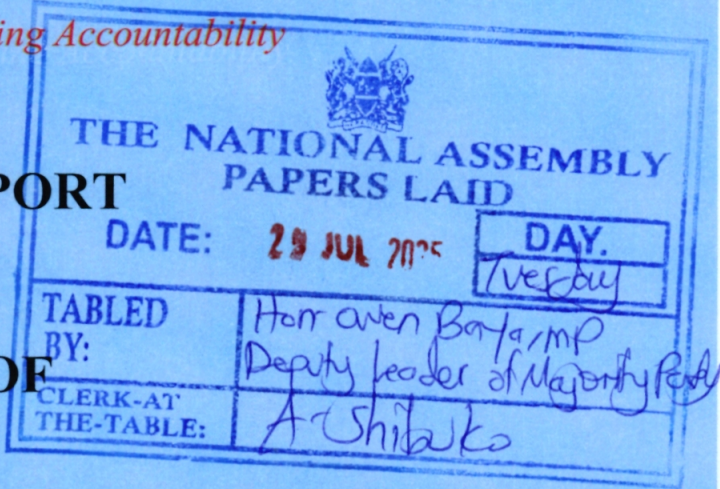 ing Accountability
THE NATIONAL ASSEMBLY
PAPERS LAID
PORT
DATE: 29 JUL 2025
DAY.
Tuesday
TABLED BY:
Hon Owen Baya, MP
Deputy Leader of Majority Party
OF
CLERK-AT THE-TABLE:
A. Shibuko